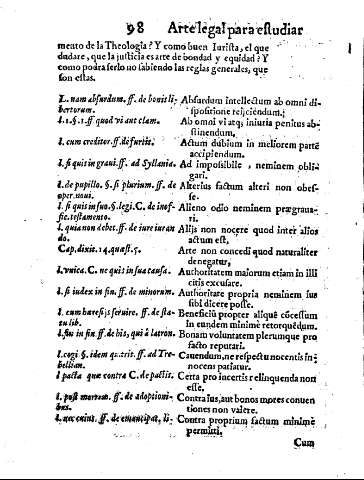 98 Arte legal para estudiar
mento de la Theologia? Y como buen Iurista, el que
dudare, que la justicia es arte de bondad y equidad? Y
como podra serlo no sabiendo las reglas generales, que
son estas.
L. nam absurdum. ff. de bonis li- Absurdum intellectum ab omni di-
bertorum. spositione reijciendum.
l. 1. §. 1. ff quod vi aut clam. Ab omni vi atq; iniuria penitus ab-
stinendum,
l. cum creditor. ff. de furtis. Actum dubium in meliorem partē
accipiendum.
l. si quis in graui. ff. ad Syllania. Ad impossibile, neminem obli-
gari.
l. de pupillo. §. si plurium. ff. de Alterius factum alteri non obes-
oper. noui. se.
l. si quis in suo. §. legi. C. de inof- Alieno odio neminem prægraua-
fic. testamento. ri.
l. quia non debet. ff. de iure iuran Alijs non nocere quod inter alios
do. actum est,
Cap. dixit. 14. quæst. 5. Arte non concedi quod naturaliter
denegatur,
l. vnica. C. ne quis in sua causa. Authoritatem maiorum etiam in illi
citis excusare.
l. si iudex in fin. ff. de minorum. Authoritate propria neminem ius
sibi dicere posse.
l. cum hæresi; seruire. ff. de sta- Beneficiū propter aliquē cōcessum
tu lib. In eundem minimè retorquēdum.
l. fin in fin. ff. de his, qui à latron. Bonam voluntatem plerumque pro
facto reputari.
l. cogi §. idem quærit. ff. ad Tre- Cauendum, ne respectu nocentis in-
bellian. nocens patiatur.
l pacta quæ contra C. de pactis. Certa pro incertis relinquenda non
esse.
l. post mortem. ff. de adoptioni- Contra ius, aut bonos mores conuen
bus. tiones non valere.
l. nec enius. ff. de emancipat. li- Contra proprium factum minimè
permitti,
Cum